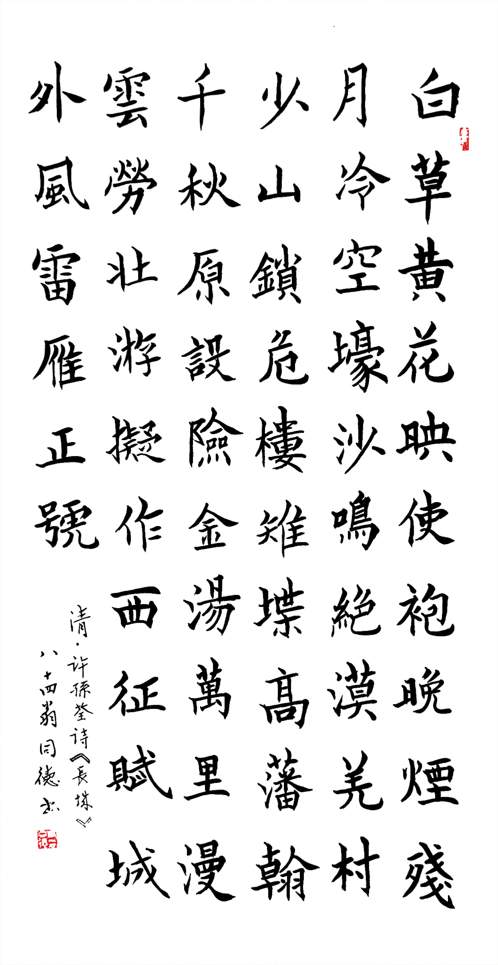 白草黄花映使袍晚煙殘
月冷空壕沙鳴絕漠羌村
少山鎖危樓雉堞高藩翰
千秋原設險金湯萬里漫
雲勞壯游擬作西征賦城
外風雷雁正號
清·许孫荃诗《長城》
八十四翁同德书